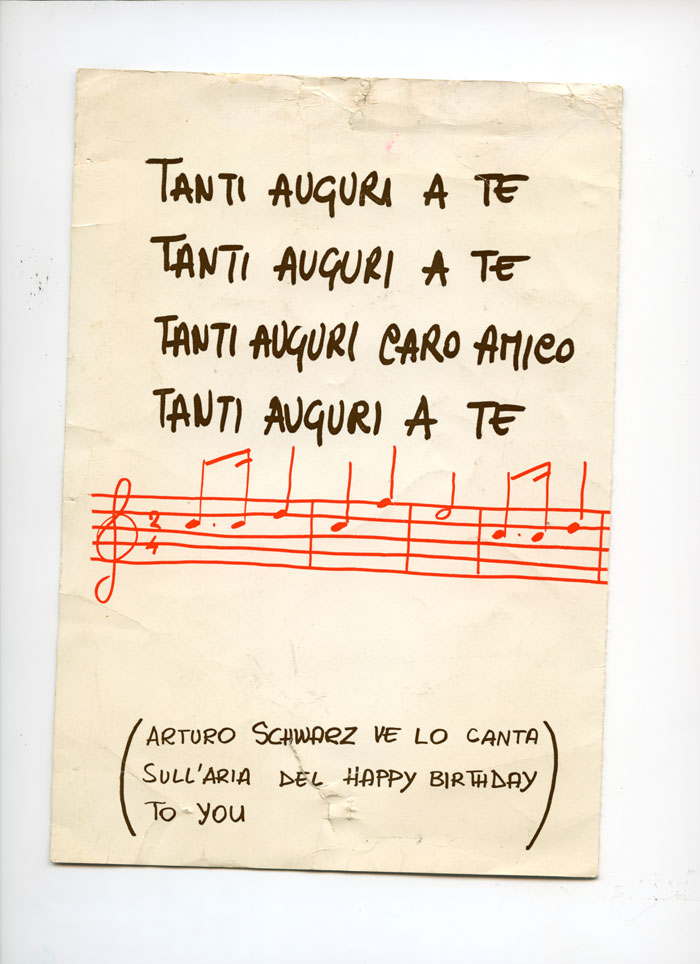 TANTI AUGURI A TE
TANTI AUGURI A TE
TANTI AUGURI CARO AMICO
TANTI AUGURI A TE
3
4
(ARTURO SCHWARZ VE LO CANTA
SULL'ARIA DEL HAPPY BIRTHDAY
TO YOU)